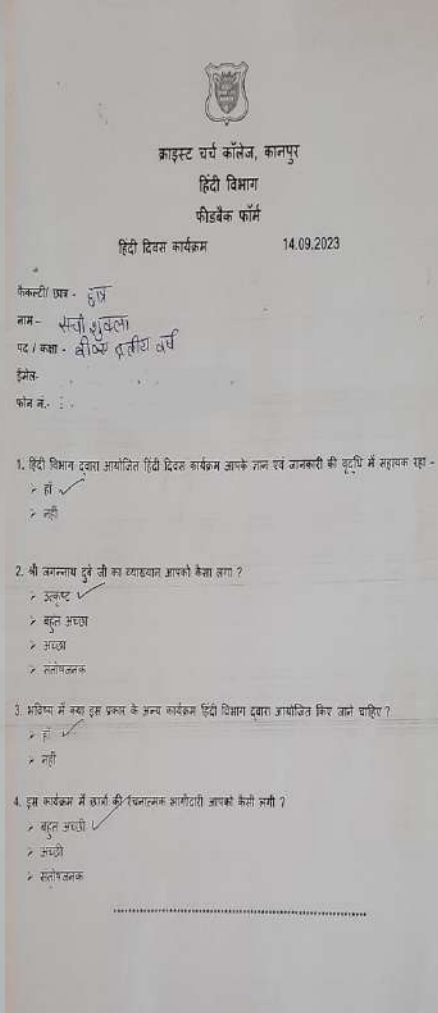 क्राइस्ट चर्च कॉलेज, कानपुर
हिंदी विभाग
फीडबैक फॉर्म
हिंदी दिवस कार्यक्रम 14.09.2023
फैकल्टी/ छात्र - छात्र
नाम - सची शुक्ला
पद / कक्षा - बीए तृतीय वर्ष
ईमेल-
फोन नं.- :
1. हिंदी विभाग द्वारा आयोजित हिंदी दिवस कार्यक्रम आपके ज्ञान एवं जानकारी की वृद्धि में सहायक रहा -
➢ हाँ ✓
➢ नहीं
2. श्री जगन्नाथ दुबे जी का व्याख्यान आपको कैसा लगा ?
➢ उत्कृष्ट ✓
➢ बहुत अच्छा
➢ अच्छा
➢ संतोषजनक
3. भविष्य में क्या इस प्रकार के अन्य कार्यक्रम हिंदी विभाग द्वारा आयोजित किए जाने चाहिए ?
➢ हाँ ✓
➢ नहीं
4. इस कार्यक्रम में छात्रों की रचनात्मक भागीदारी आपको कैसी लगी ?
➢ बहुत अच्छी ✓
➢ अच्छी
➢ संतोषजनक